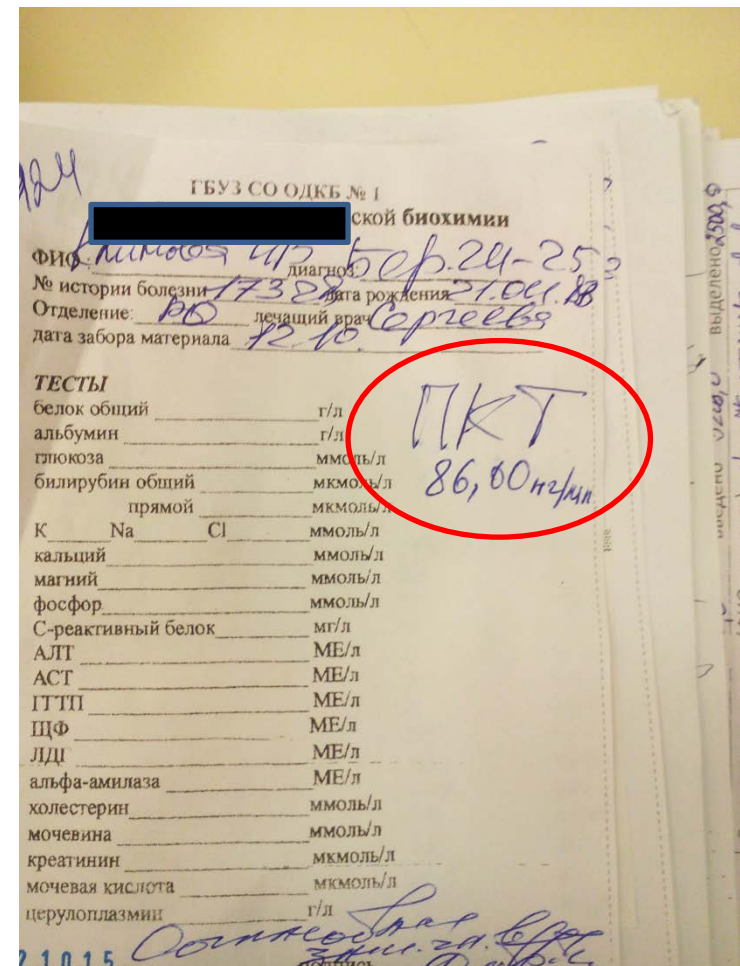 ГБУЗ СО ОДКБ № 1
ской биохимии
ФИО: диагноз: Бер. 24-25
№ истории болезни 17328 дата рождения 21.04.
Отделение: РО лечащий врач Сергеева
дата забора материала 12.10.
ТЕСТЫ
белок общий г/л
ПКТ
альбумин г/л
глюкоза ммоль/л
86,00 нг/мл
билирубин общий мкмоль/л
прямой мкмоль/л
К Na Cl ммоль/л
кальций ммоль/л
магний ммоль/л
фосфор ммоль/л
С-реактивный белок мг/л
АЛТ МЕ/л
АСТ МЕ/л
ГГТП МЕ/л
ЩФ МЕ/л
ЛДГ МЕ/л
альфа-амилаза МЕ/л
холестерин ммоль/л
мочевина ммоль/л
креатинин мкмоль/л
мочевая кислота мкмоль/л
церулоплазмин г/л
21015
подпись
выделено 2500,0
введено